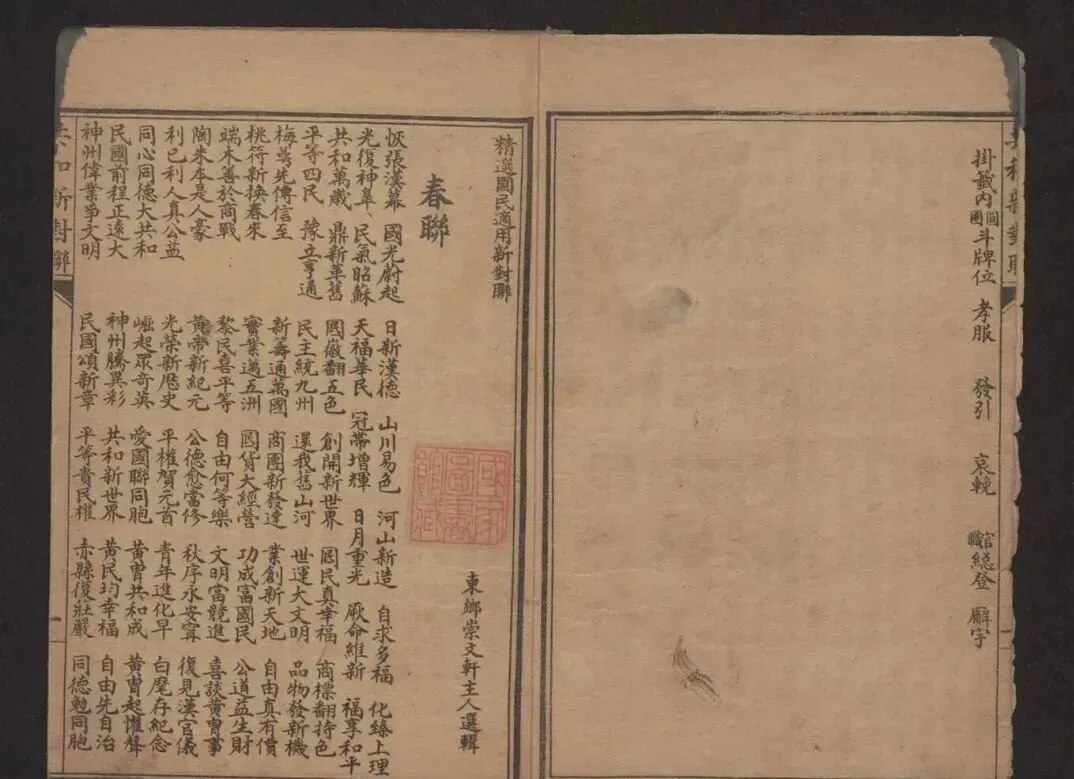 掛籤內圖斗牌位 孝服 發引 哀輓 官職總登 廨宇
精選國民適用新對聯
東鄉崇文軒主人選輯
春聯
恢張漢幕 國光蔚起 日新漢德 山川易色 河山新造 自求多福 化臻上理
光復神皋 民氣昭蘇 天福華民 冠帶增輝 日月重光 厥命維新 福享和平
共和萬歲 鼎新革舊 國徽翻五色 創開新世界 國民真幸福 商標翻特色
平等四民 豫立亨通 民主統九州 還我舊山河 世運大文明 品物發新機
梅萼先傳信至 新籌通萬國 商團新發達 業創新天地 自由真有價
桃符新換春來 實業邁五洲 國貨大經營 功成富國民 公道益生財
端木善於商戰 黎民喜平等 自由何等樂 文明當競進 喜談黃胄事
陶朱本是人豪 黃帝新紀元 公德愈當修 秋序永安甯 復見漢官儀
利已利人真公益 光榮新歷史 平權賀元首 青年進化早 白麾存紀念
同心同德大共和 崛起眾奇英 愛國聯同胞 黃胄共和成 黃胄起懽聲
民國前程正遠大 神州騰異彩 共和新世界 黃民均幸福 自由先自治
神州偉業爭文明 民國頌新章 平等貴民權 赤縣復莊嚴 同德勉同胞
共和新對聯